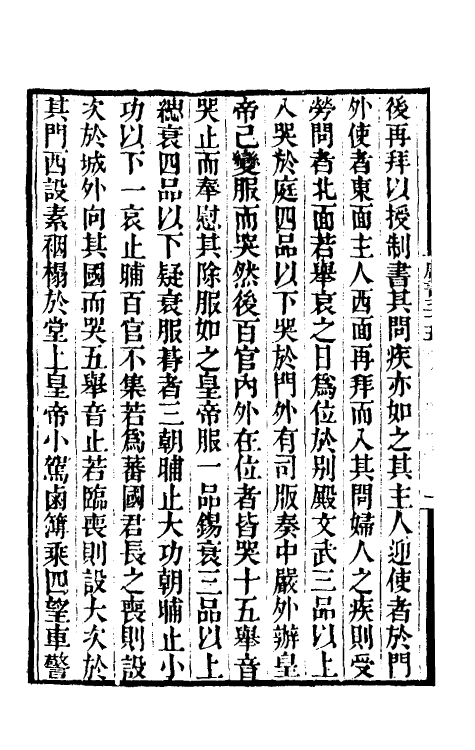 後再拜以授制書其問疾亦如之其主人迎使者於門
外使者東面主人西面再拜而入其問婦人之疾則受
勞問者北面若舉哀之日爲位於別殿文武三品以上
入哭於庭四品以下哭於門外有司版奏中嚴外辦皇
帝已變服而哭然後百官內外在位者皆哭十五舉音
哭止而奉慰其除服如之皇帝服一品錫衰三品以上
緦衰四品以下疑衰服朞者三朝晡止大功朝晡止小
功以下一哀止晡百官不集若爲蕃國君長之喪則設
次於城外向其國而哭五舉音止若臨喪則設大次於
其門西設素裀榻於堂上皇帝小駕鹵簿乘四望車警